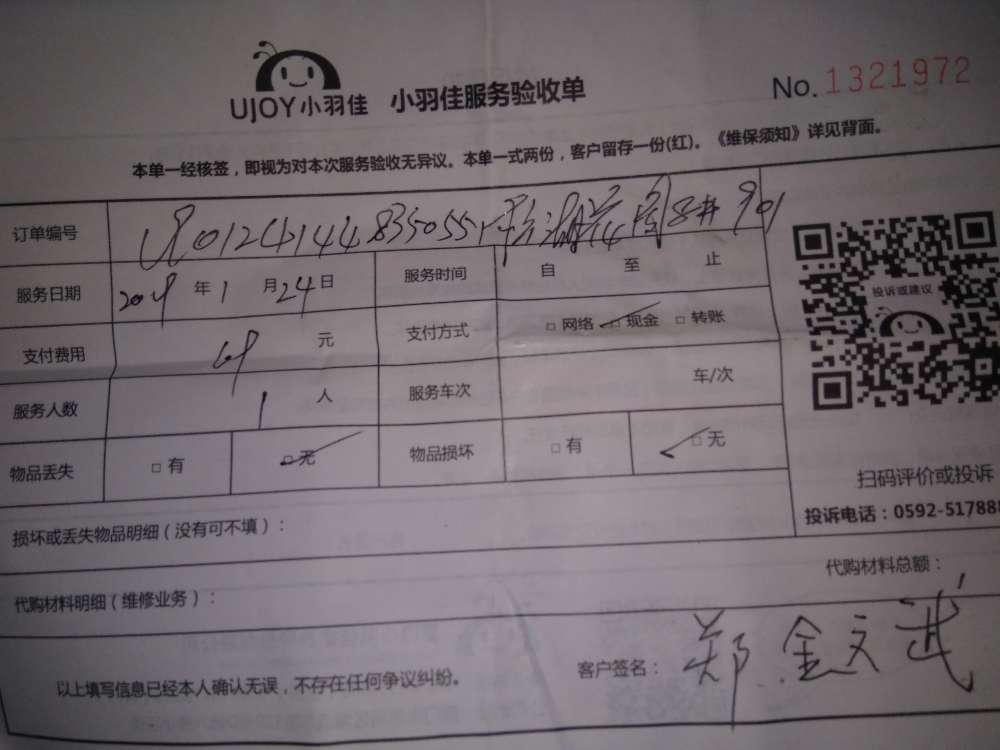 UJOY小羽佳 小羽佳服务验收单 No. 1321972
本单一经核签，即视为对本次服务验收无异议。本单一式两份，客户留存一份(红)。《维保须知》详见背面。
订单编号
服务日期 年 1 月 24 日 服务时间 自 至 止
支付费用 元 支付方式 □ 网络 □ 现金 □ 转账
服务人数 1 人 服务车次 车/次
物品丢失 □ 有 □ 无 物品损坏 □ 有 □ 无
投诉或建议
扫码评价或投诉
投诉电话：0592-517888
损坏或丢失物品明细（没有可不填）：
代购材料明细（维修业务）： 代购材料总额：
以上填写信息已经本人确认无误，不存在任何争议纠纷。 客户签名：郑金文武